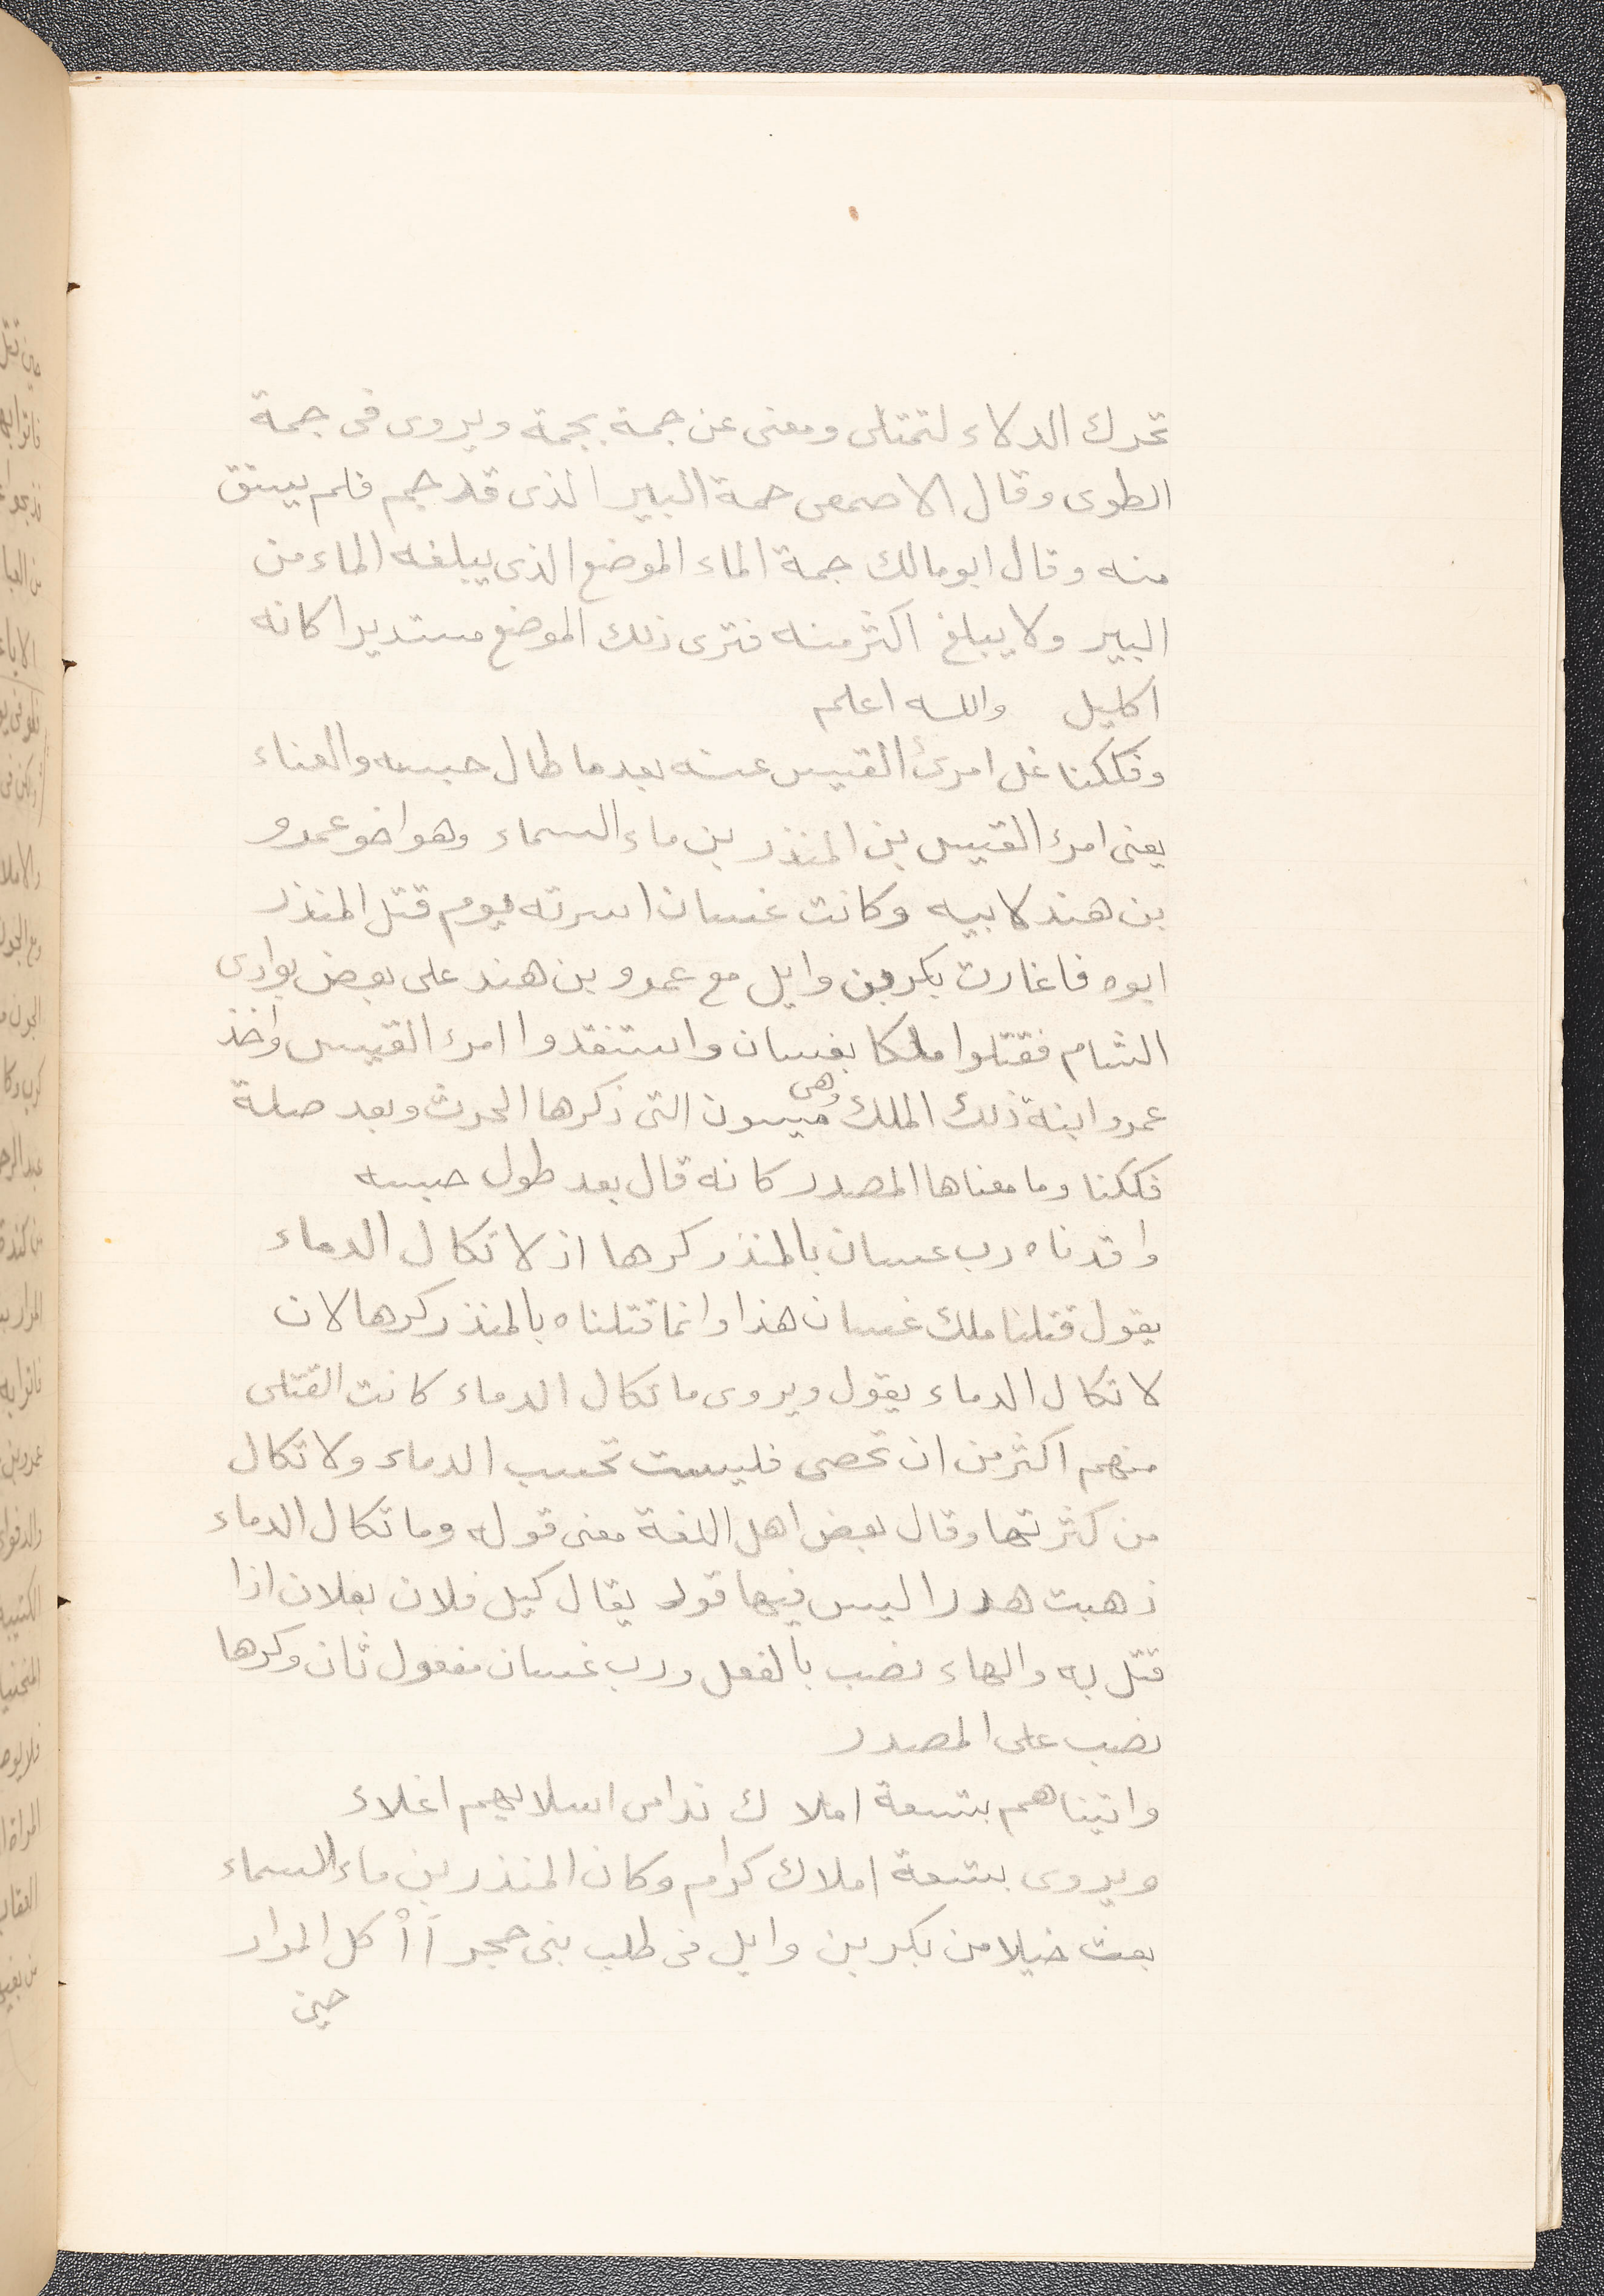 تحرك الدلاء لتمتلى ومعنى عن جمة بجمة ويروى فى جمة
الطوى وقال الاصمعى جمة البير الذى قد جم فلم يستق
منه وقال ابو مالك جمة الماء الموضع الذى يبلغه الماء من
البير ولا يبلغ اكثر منه فترى ذلك الموضع مستديرا كانه
اكليل والله اعلم
وفككنا غل امرئ القيس عنه بعد ما طال حبسه والعناء
يعنى امرء القيس بن المنذر بن ماء السماء وهو اخو عمرو
بن هند لابيه وكانت غسان اسرته يوم قتل المنذر
ابوه فاغارت بكر بن وايل مع عمرو بن هند على بعض بوادى
الشام فقتلوا ملكا بغسان واستنقدوا امرء القيس واخذ
عمرو ابنة ذلك الملك وهى ميسون التى ذكرها الحرث وبعد صلة
فككنا وما معناها المصدر كانه قال بعد طول حبسه
واقدناه رب غسان بالمنذر كرها اذ لا تكال الدماء
يقول قتلنا ملك غسان هذا وانما قتلناه بالمنذر كرها لان
لا تكال الدماء يقول ويروى ما تكال الدماء كانت القتلى
منهم اكثر من ان تحصى فليست تحسب الدماء ولا تكال
من كثرتها وقال بعض اهل اللغة معنى قوله وما تكال الدماء
ذهبت هدرا ليس فيها قود يقال كيل فلان بفلان اذا
قتل به والهاء نصب بالفعل ورب غسان مفعول ثان وكرها
نصب على المصدر
واتيناهم بتسعة املاك ندامى اسلابهم اغلاء
ويروى بتسعة املاك كرام وكان المنذر بن ماء السماء
بعث خيلا من بكر بن وايل فى طلب بنى حجر آأكل المرار
حين